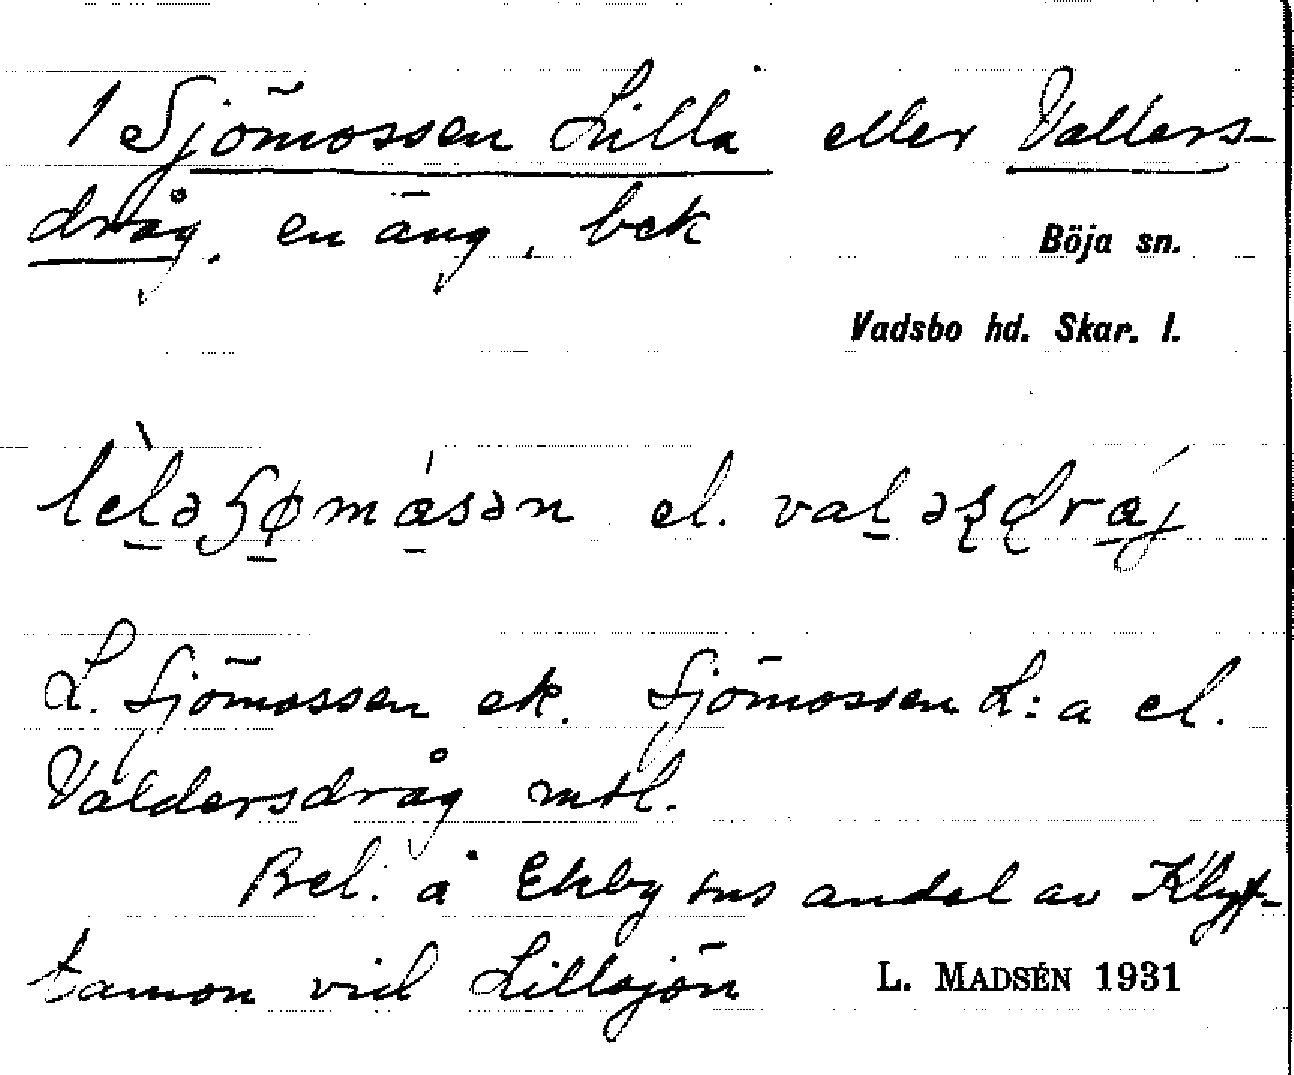 1 Sjömossen Lilla eller Vallers-
dråg, en äng, bek
Böja sn.
Vadsbo hd. Skar. l.
el.
L. Sjömossen ek. Sjömossen L:a el.
Valdersdråg mtl.
Bel. å Ekby sns andel av Klyf-
tamon vid Lillsjön
L. MADSÉN 1931